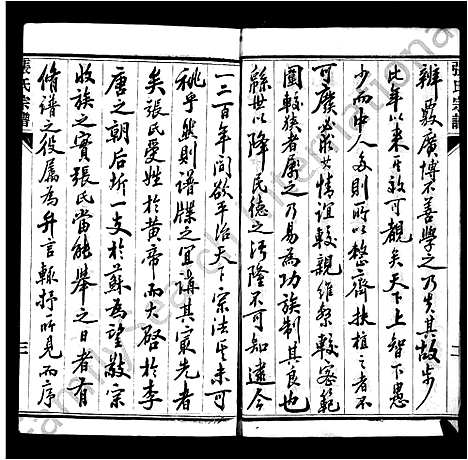 張氏宗譜
辨覈廣博不善學之乃失其故步
比年以來其效可觀矣天下上智下愚
少而中人多則所以整齊扶植之者不
可廢必藉其情誼較親維繫較密範
圍較狹者屬之乃易為功族制其良也
繇世以降民德之污隆不可知逮今
二
一二百年間欲平治天下宗法其未可
祧乎然則譜牒之宜講其東先者
矣張氏受姓於黃帝而大啓於李
唐之朝后所一支於蘇為望敬宗
收族之實張氏當能舉之日者有
修譜之役屬為弁言輒抒所見而序
張氏宗譜
三
FamilySearch International